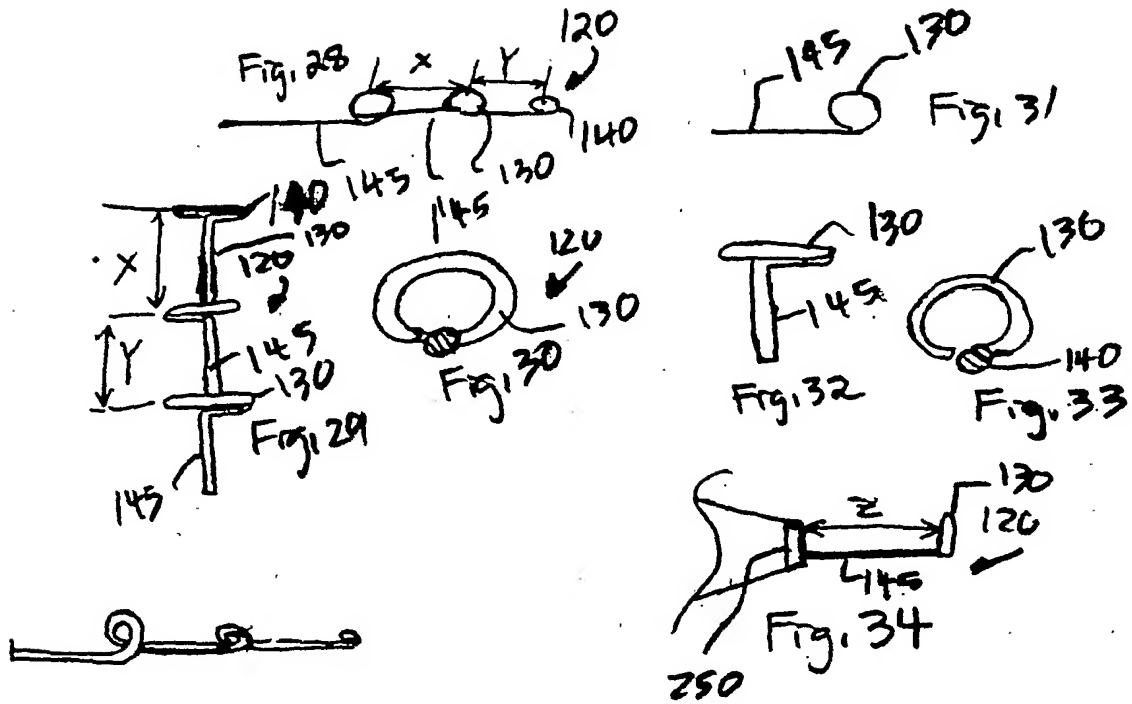 Fig. 28
X
Y
120
140
145
130
145
145
130
Fig. 31
140
130
120
X
Y
145
130
Fig. 29
145
120
130
Fig. 30
130
145
Fig. 32
130
140
Fig. 33
130
120
Z
145
Fig. 34
250